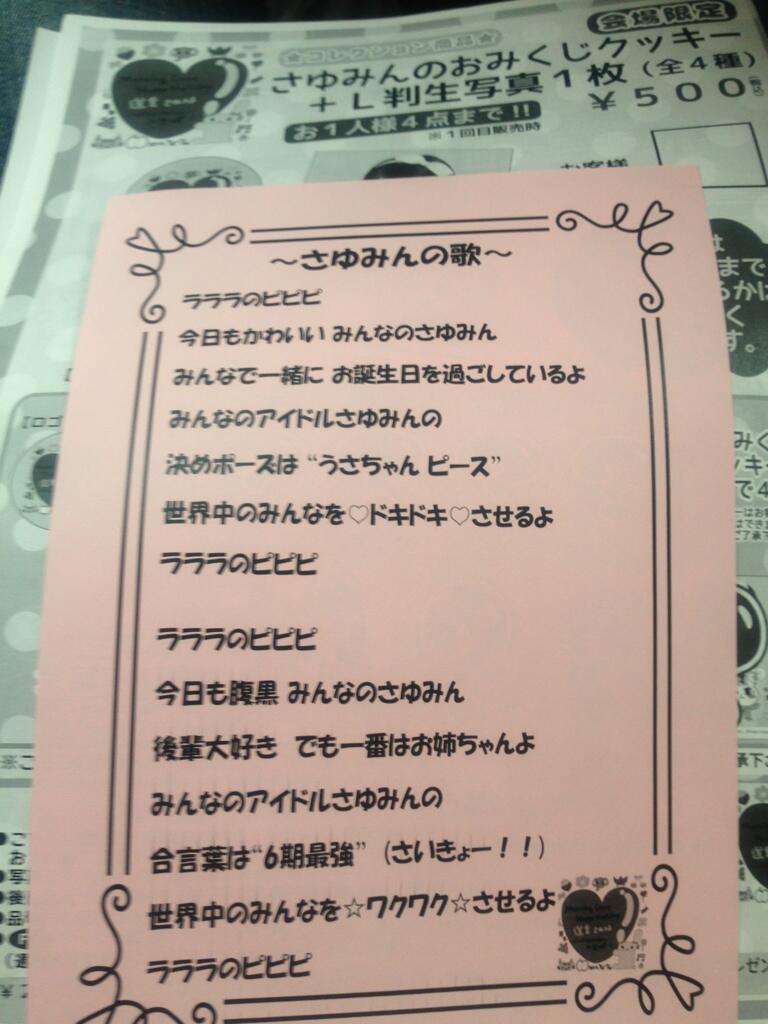 会場限定
☆コレクション商品☆
さゆみんのおみくじクッキー
+L判生写真1枚(全4種)
¥500(税込)
お1人様4点まで!!
※1回目販売時
お客様
～さゆみんの歌～
ラララのピピピ
今日もかわいい みんなのさゆみん
みんなで一緒に お誕生日を過ごしているよ
みんなのアイドルさゆみんの
決めポーズは “うさちゃん ピース”
世界中のみんなを♡ドキドキ♡させるよ
ラララのピピピ
ラララのピピピ
今日も腹黒 みんなのさゆみん
後輩大好き でも一番はお姉ちゃんよ
みんなのアイドルさゆみんの
合言葉は“6期最強” (さいきょー!!)
世界中のみんなを☆ワクワク☆させるよ
ラララのピピピ